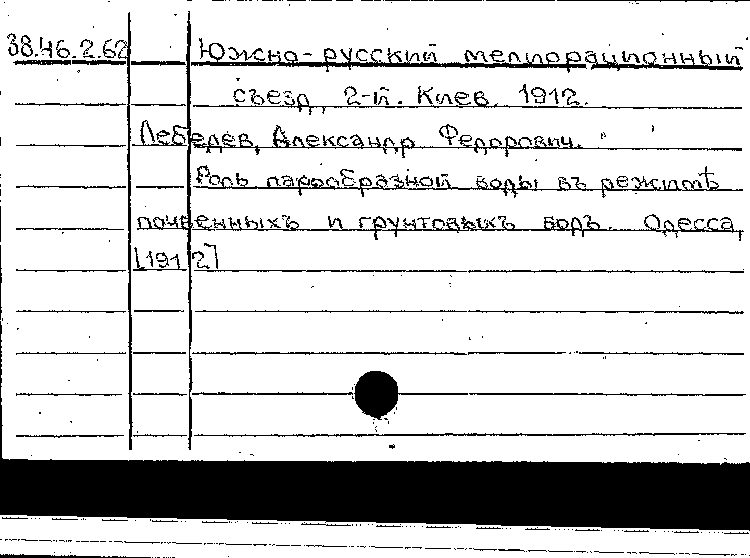 38.46.2.62 Южно-русский мелиорационный
съезд, 2-й. Киев. 1912.
Лебедев, Александр Федорович.
Роль парообразной воды въ режимѣ
почвенныхъ и грунтовыхъ водъ. Одесса,
[1912]